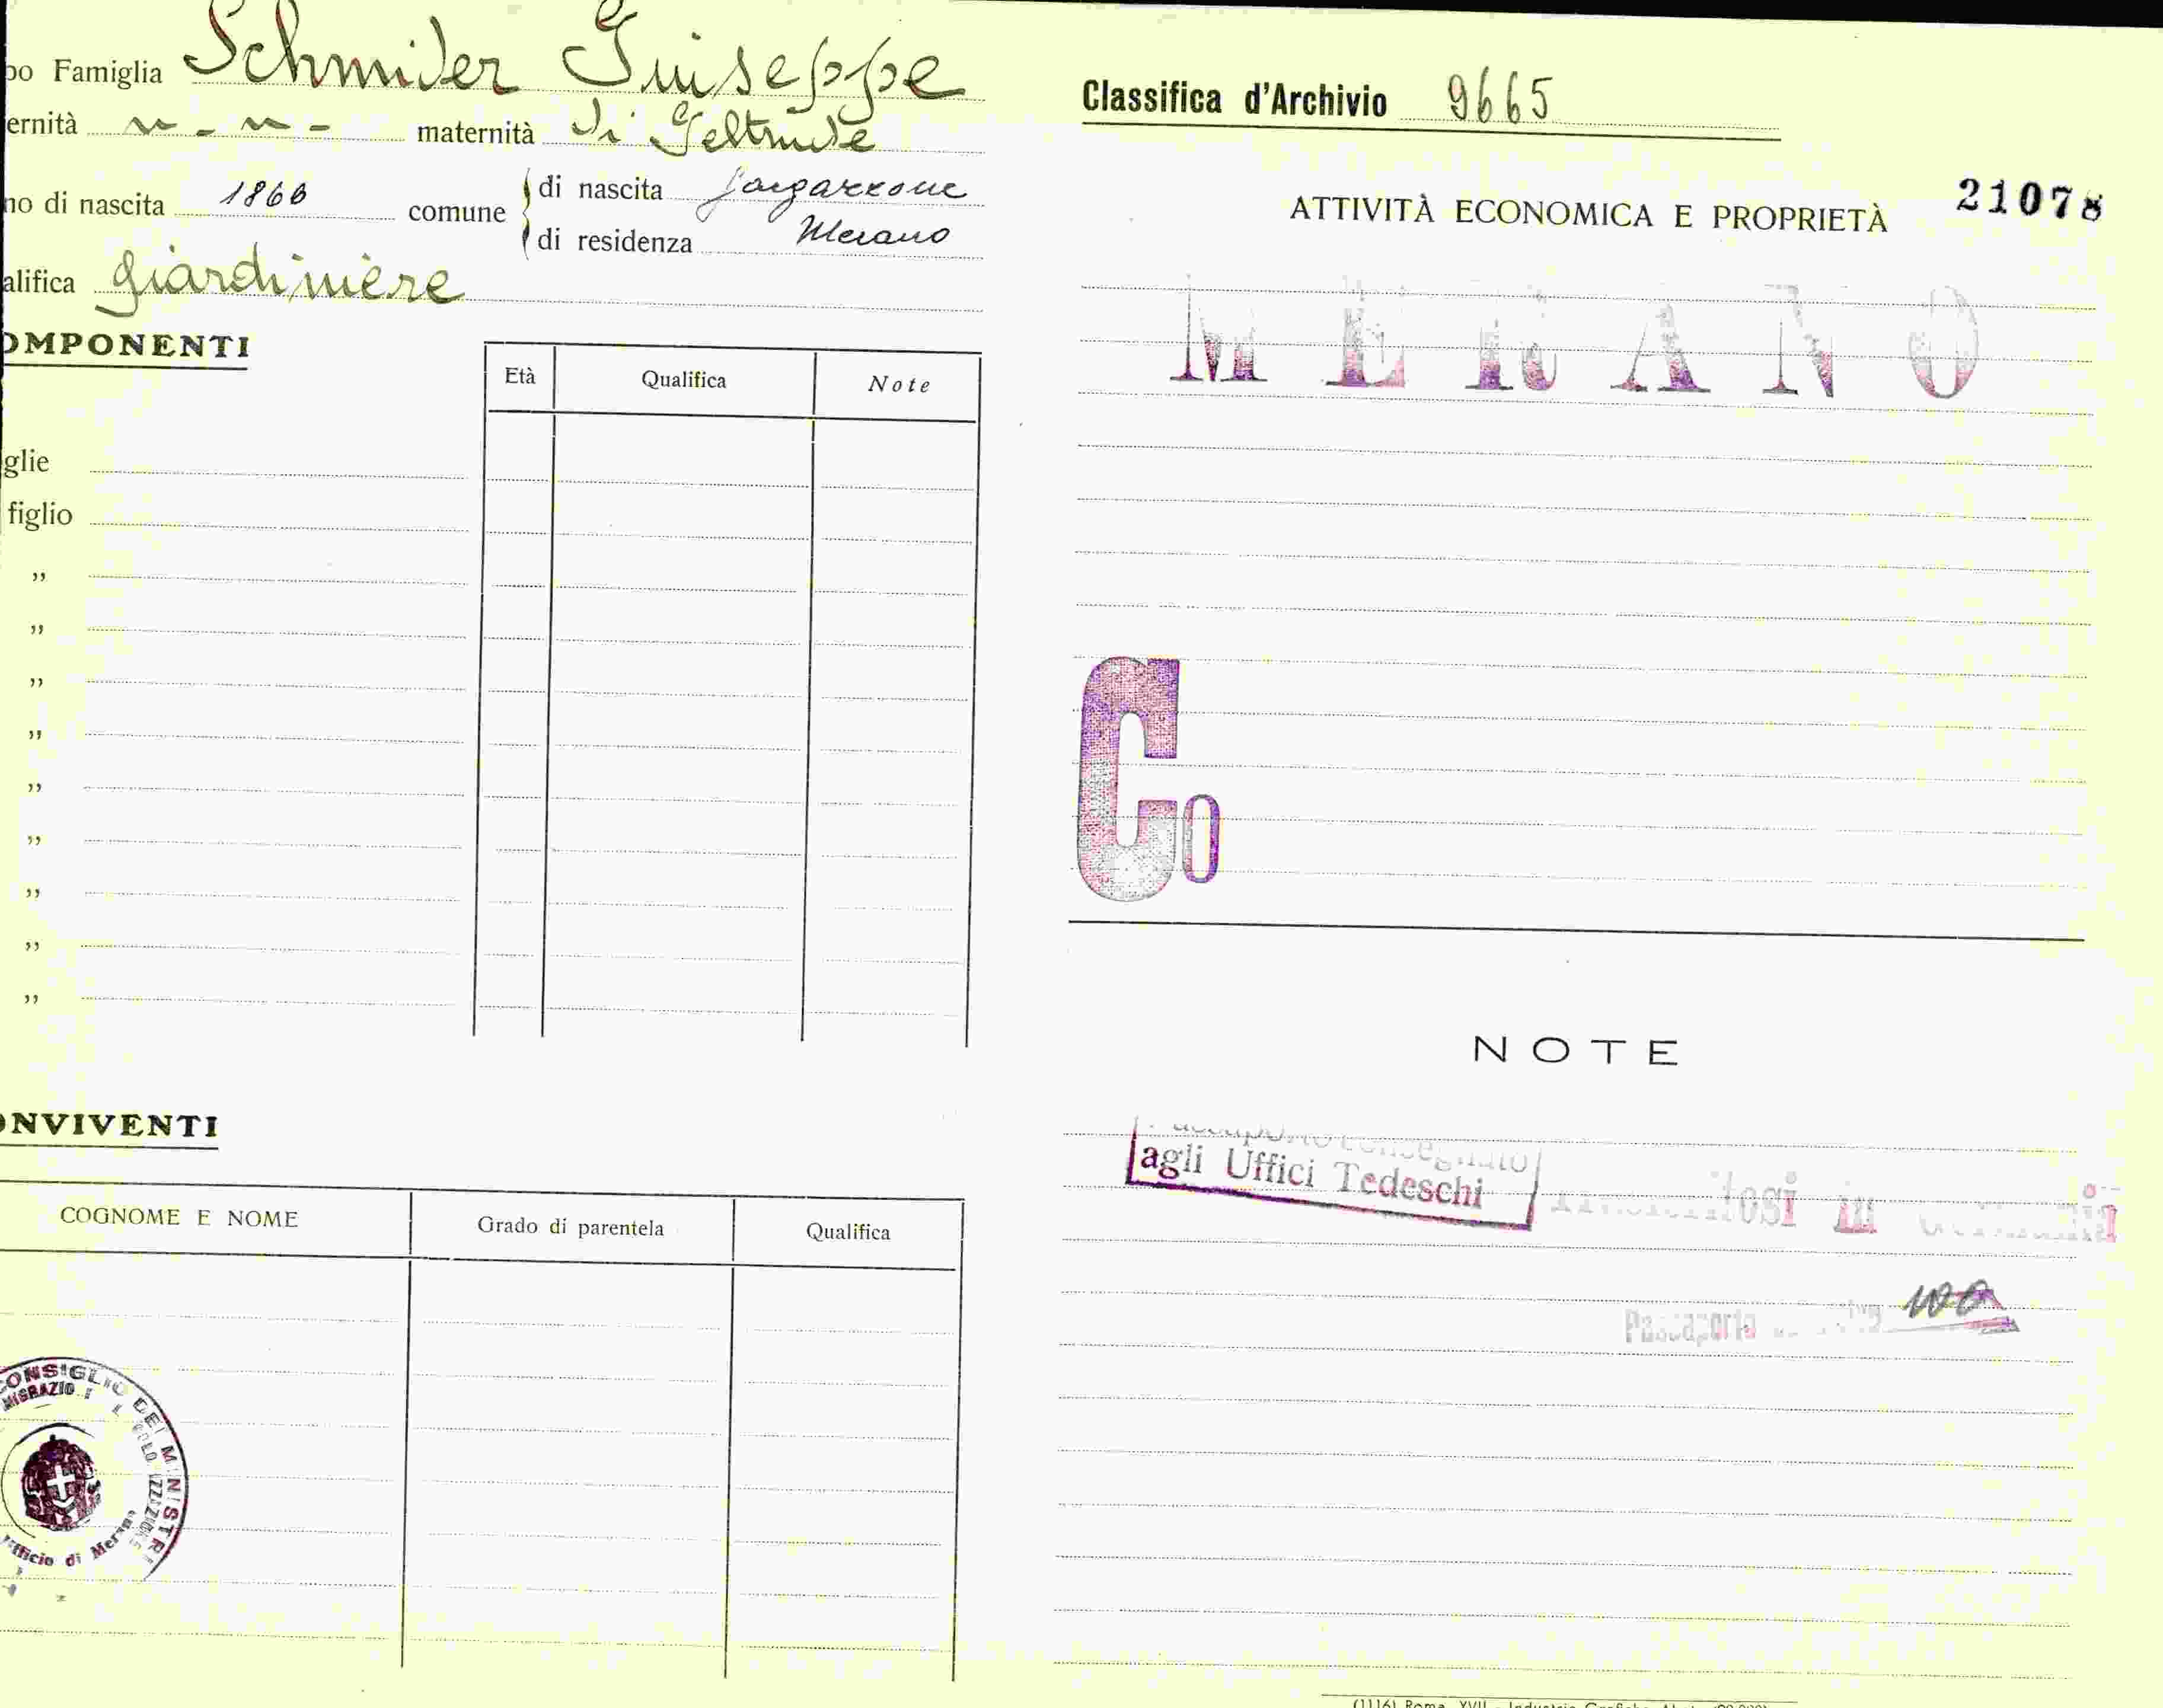 po Famiglia Schmider Giuseppe
ernità n - n - maternità di Geltrude
no di nascita 1860 comune di nascita Gargazzone
di residenza Merano
alifica giardiniere
OMPONENTI
Età Qualifica Note
glie
figlio
"
"
"
"
"
"
"
"
"
ONVIVENTI
COGNOME E NOME Grado di parentela Qualifica
CONSIGLIO DEI MINISTRI
Ufficio di Merano
Classifica d'Archivio 9665
21078
ATTIVITÀ ECONOMICA E PROPRIETÀ
MERANO
Co
NOTE
consegnato
agli Uffici Tedeschi
in
Passaporto 100
(1116) Roma, XVII - Industrie Grafiche